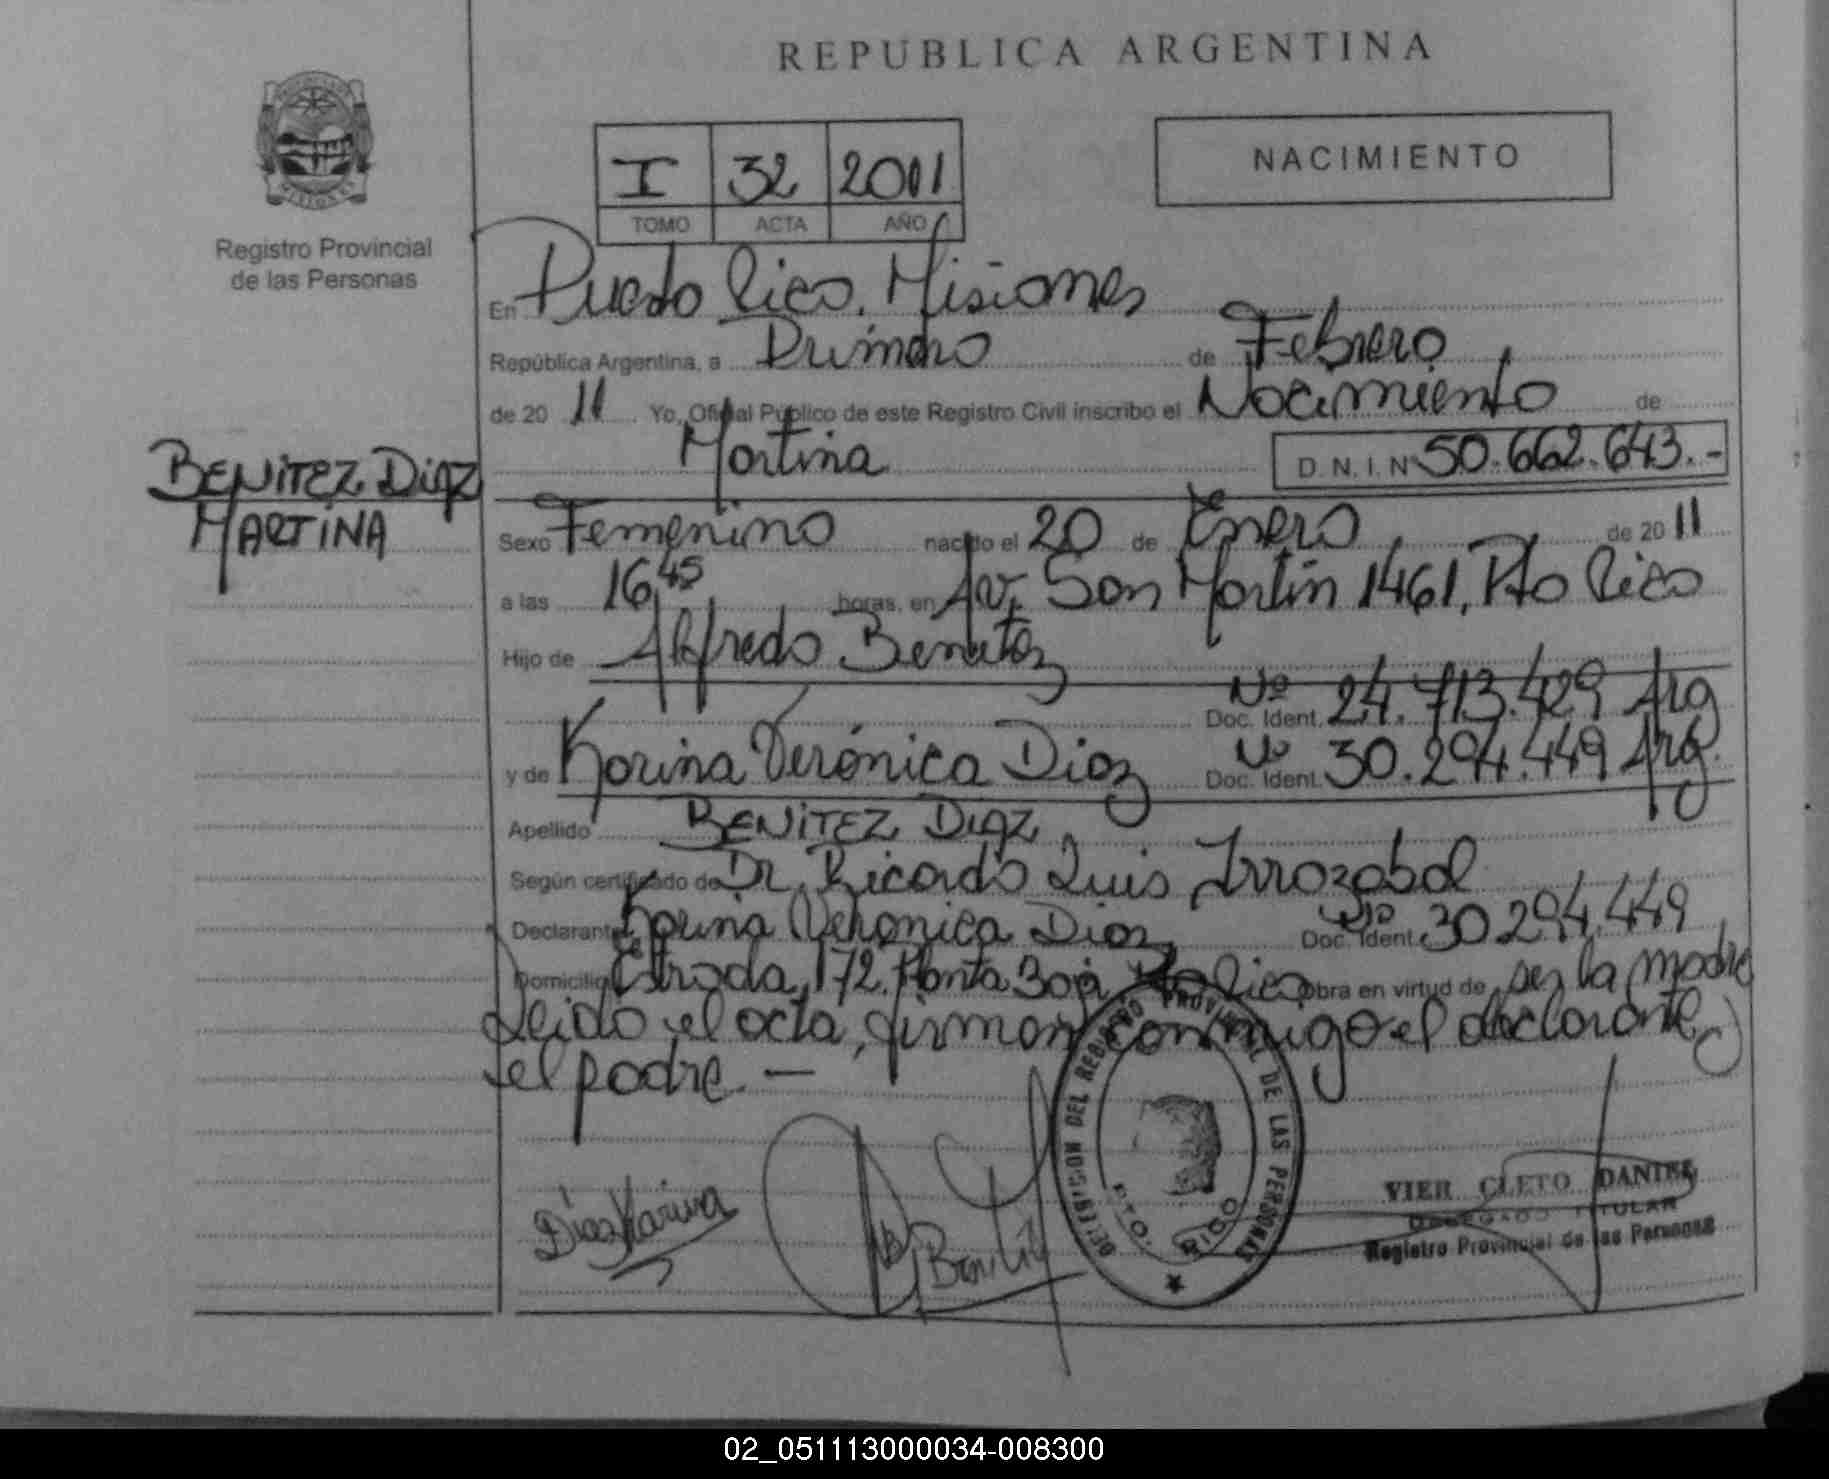 REPUBLICA ARGENTINA
PROVINCIA DE MISIONES
Registro Provincial
de las Personas
I 32 2011
TOMO ACTA AÑO
NACIMIENTO
En Puerto Rico, Misiones
República Argentina, a Primero de Febrero
de 20 11 Yo, Oficial Público de este Registro Civil inscribo el Nacimiento de
Martina D.N.I. Nº 50.662.643.-
BENITEZ DIAZ
MARTINA
Sexo Femenino nacido el 20 de Enero de 20 11
a las 16,45 horas, en Av. San Martín 1461, Pto Rico
Hijo de Alfredo Benitez
Nº
Doc. Ident. 24.713.429 Arg
y de Karina Verónica Diaz Nº Doc. Ident. 30.294.449 Arg.
Apellido BENITEZ DIAZ
Según certificado de Dr. Ricardo Luis Irrazabal
Declarante Karina Veronica Diaz Nº Doc. Ident. 30.294.449
Domicilio Estrada 172. Planta Baja Pto Rico obra en virtud de ser la madre
Leido el acta, firman conmigo el declarante y
el padre. —
DELEGACION DEL REGISTRO PROVINCIAL DE LAS PERSONAS
PTO. RICO
Diaz Karina
Benitez
VIER CLETO DANIEL
DELEGADO TITULAR
Registro Provincial de las Personas
02_051113000034-008300